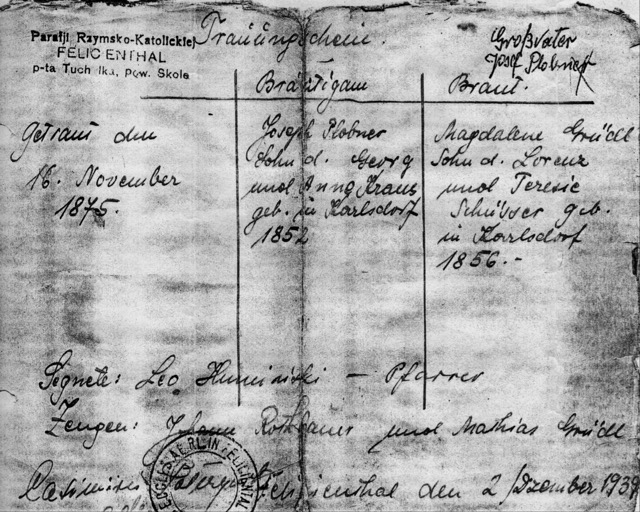 Parafji Rzymsko-Katolickiej
FELICIENTHAL
p-ta Tuchlka, pow. Skole
Trauungschein.
Großvater
Josef Plobner
Bräutigam
Braut.
Getraut den
16. November
1875.
Joseph Plobner
Sohn d. Georg
und Anna Kraus
geb. in Karlsdorf
1852
Magdalene Gründl
Sohn d. Lorenz
und Teresie
Schüsser geb.
in Karlsdorf
1856.-
Segnete: Leo - Pfarrer
Zeugen: Johann Rothbauer und Mathias Gründl
Casimir Felizienthal den 2/Dzember 1939